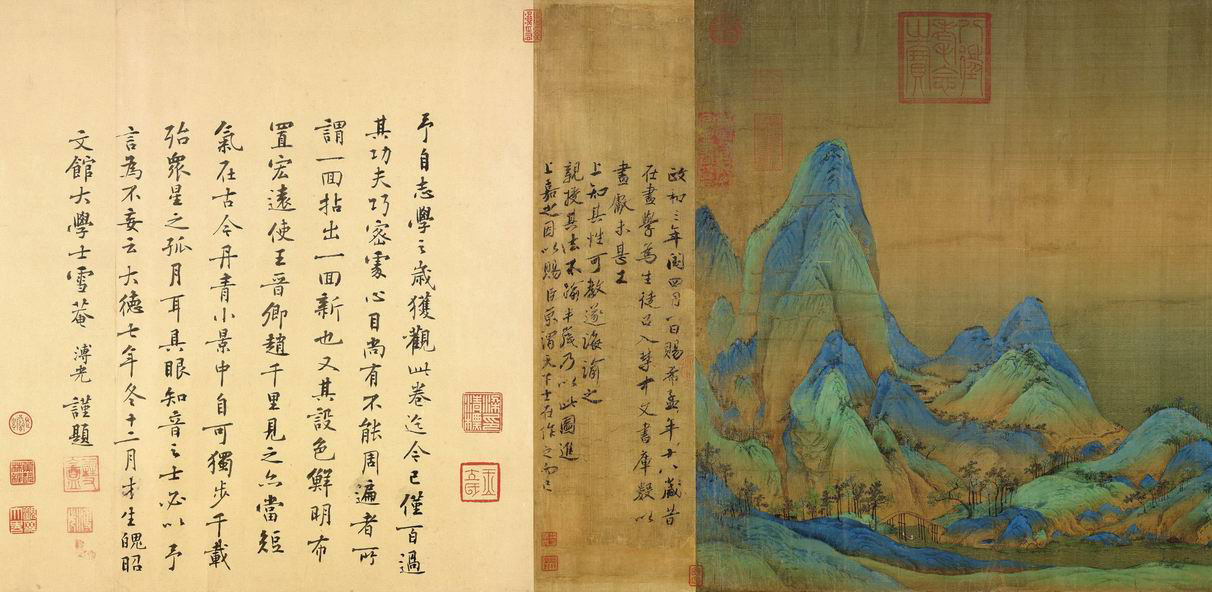 八徵耄念之寶
政和三年閏四月一日賜希孟年十八歲昔
在畫學為生徒召入禁中文書庫數以
畫獻未甚工
上知其性可教遂誨諭之
親授其法不踰半歲乃以此圖進
上嘉之因以賜臣京謂天下士在作之而已
予自志學之歲獲觀此卷迄今已僅百過
其功夫巧密處心目尚有不能周遍者所
謂一面拈出一面新也又其設色鮮明布
置宏遠使王晉卿趙千里見之亦當短
氣在古今丹青小景中自可獨步千載
殆眾星之孤月耳具眼知音之士必以予
言為不妄云大德七年冬十二月才生魄昭
文館大學士雪菴溥光謹題